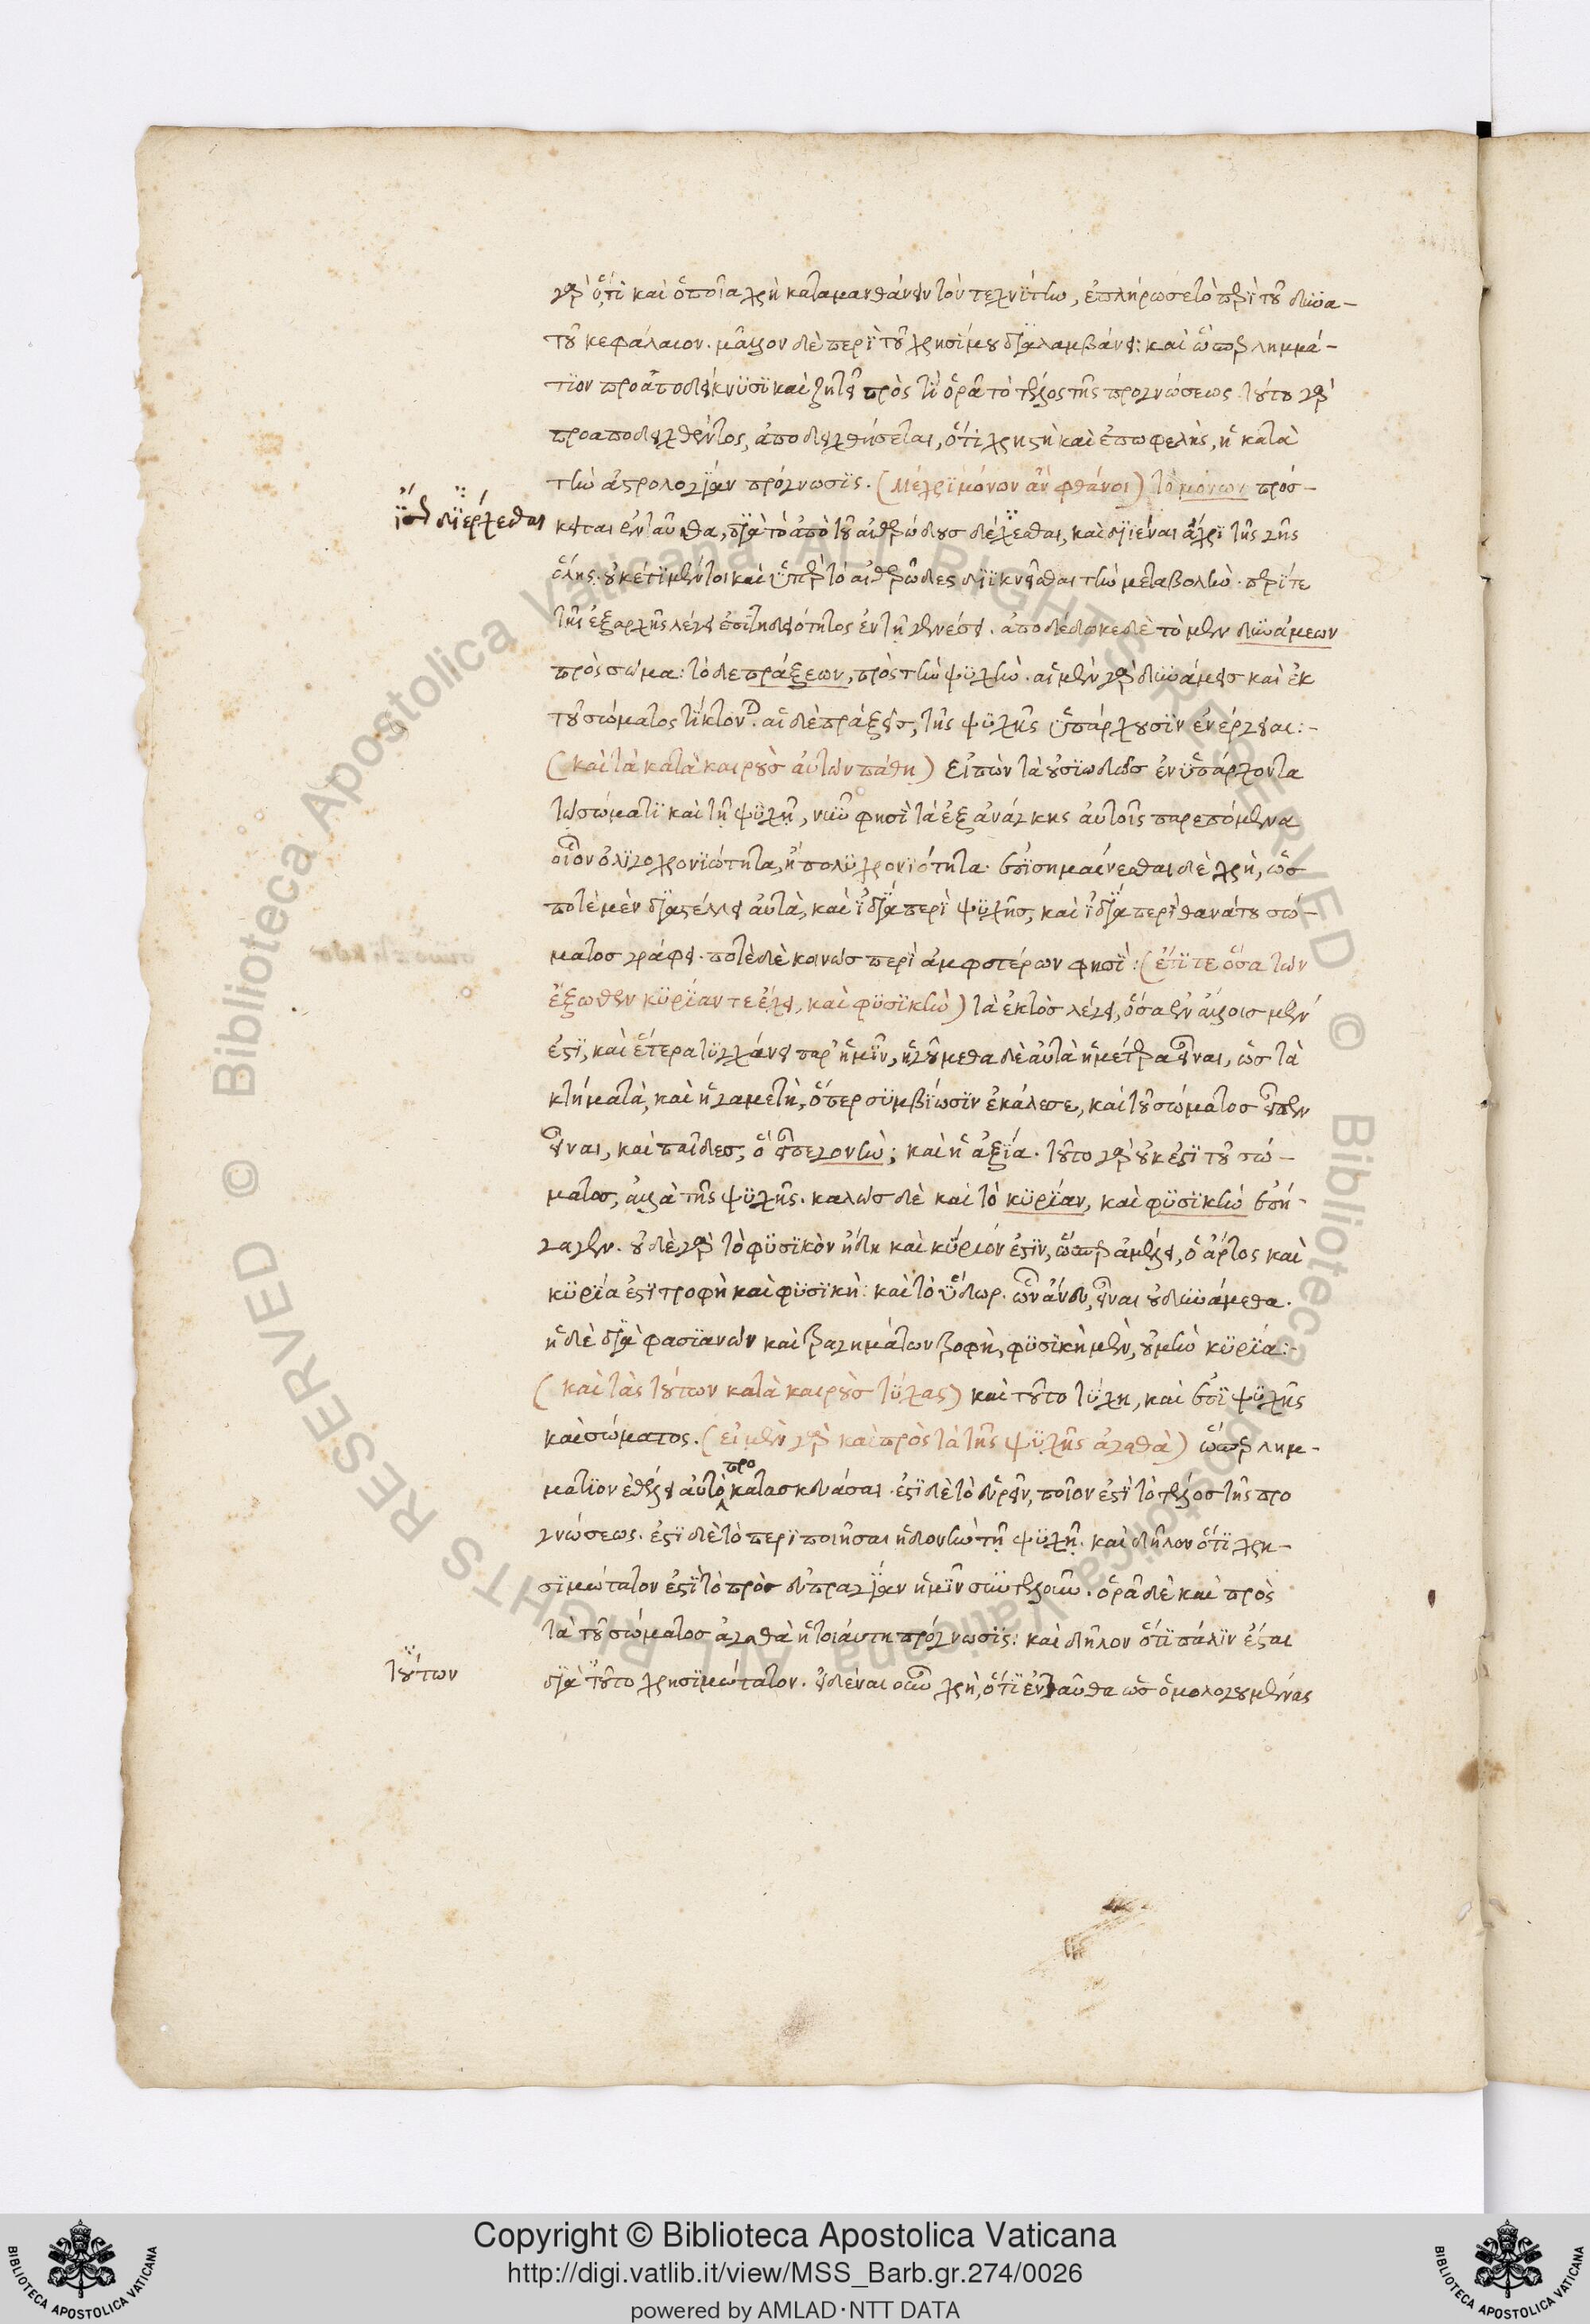 γὰρ ὅτι καὶ ὁποῖα χρὴ καταμανθάνειν τὸν τεχνίτην, ἐπλήρωσε τὸ περὶ τοῦ δυνα-
τοῦ κεφάλαιον. μᾶλλον δὲ περὶ τοῦ χρησίμου διαλαμβάνει: καὶ ὥσπερ λημμά-
τιον προαποδείκνυσι καὶ ζητεῖ πρὸς τί ὁρᾷ τὸ τέλος τῆς προγνώσεως. τούτου γὰρ
προαποδειχθέντος, ἀποδειχθήσεται, ὅτι χρηστὴ καὶ ἐπωφελὴς, ἡ κατὰ
τὴν ἀστρολογίαν πρόγνωσις. (μέχρι μόνον ἂν φθάνοι) τὸ μόνων πρόσ-
ἴσ διέρχεσθαι
κειται ἐνταῦθα, διὰ τὸ ἀπὸ τοῦ αἰθερώδους δέχεσθαι, καὶ διιέναι ἄχρι τῆς γῆς
ὅλης. οὐκέτι μέντοι καὶ ὑπὲρ τὸ αἰθερῶδες διικνεῖσθαι τὴν μεταβολὴν. περί τε
τῆς ἐξαρχῆς λέγει ἐπιτηδειότητος ἐν τῇ γενέσει. ἀποδέδωκε δὲ τὸ μὲν δυνάμεων
πρὸς σῶμα: τὸ δὲ πράξεων, πρὸς τὴν ψυχὴν. αἱ μὲν γὰρ δυνάμεις καὶ ἐκ
τοῦ σώματος τίκτον. αἱ δὲ πράξεις, τῆς ψυχῆς ὑπάρχουσιν ἐνέργειαι:-
(καὶ τὰ κατὰ καιροὺς αὐτῶν πάθη) εἰπὼν τὰ οὐσιωδῶς ἐνυπάρχοντα
τῷ σώματι καὶ τῇ ψυχῇ, νῦν φησὶ τὰ ἐξ ἀνάγκης αὐτοῖς παρεπόμενα
οἷον ὀλιγοχρονιώτητα, ἢ πολυχρονιότητα. ἐπισημαίνεσθαι δὲ χρὴ, ὡς
ποτὲ μὲν διαστέλλει αὐτὰ, καὶ ἰδίᾳ περὶ ψυχῆς, καὶ ἰδίᾳ περὶ θανάτου σώ-
ματος γράφει. ποτὲ δὲ κοινῶς περὶ ἀμφοτέρων φησὶ: (ἔτι τε ὅσα τῶν
ἔξωθεν κυρίαν τε ἔχει, καὶ φυσικὴν) τὰ ἐκτὸς λέγει, ὅσα ἐν ἄλλοις μέν
ἐστι, καὶ ἕτερα τυγχάνει παρ' ἡμῖν, ἡγούμεθα δὲ αὐτὰ ἡμέτερα εἶναι, ὡς τὰ
κτήματα, καὶ ἡ γαμετὴ, ὅπερ συμβίωσιν ἐκάλεσε, καὶ τοῦ σώματος εἶπεν
εἶναι, καὶ παῖδες, ὃ εἶπε γονὴν; καὶ ἡ ἀξία. τοῦτο γὰρ οὐκ ἔστι τοῦ σώ-
ματος, ἀλλὰ τῆς ψυχῆς. καλῶς δὲ καὶ τὸ κυρίαν, καὶ φυσικὴν ἐπή-
γαγεν. οὐδὲ γὰρ τὸ φυσικὸν ἤδη καὶ κύριόν ἐστιν, ὥσπερ ἀμέλει, ὁ ἄρτος καὶ
κυρία ἐστὶ τροφὴ καὶ φυσικὴ: καὶ τὸ ὕδωρ. ὧν ἄνευ, εἶναι οὐ δυνάμεθα.
ἡ δὲ διὰ φασιανῶν καὶ τραγημάτων τροφὴ, φυσικὴ μὲν, οὐ μὴν κυρία:-
(καὶ τὰς τούτων κατὰ καιροὺς τύχας) καὶ τοῦτο τύχη, καὶ ἐπὶ ψυχῆς
καὶ σώματος. (εἰ μὲν γὰρ καὶ πρὸς τὰ τῆς ψυχῆς ἀγαθὰ) ὥσπερ λημ-
μάτιον ἐθέλει αὐτὸ προκατασκευάσαι. ἔστι δὲ τὸ εὑρεῖν, ποῖον ἐστὶ τὸ τέλος τῆς προ
γνώσεως. ἔστι δὲ τὸ περιποιῆσαι ἡδονὴν τῇ ψυχῇ. καὶ δῆλον ὅτι χρη-
σιμώτατον ἐστὶ τὸ πρὸς εὐπραγίαν ἡμῖν συντελοῦν. ὁρᾷ δὲ καὶ πρὸς
τὰ τοῦ σώματος ἀγαθὰ ἡ τοιαύτη πρόγνωσις: καὶ δῆλον ὅτι πάλιν ἔσται
τούτων
διὰ τοῦτο χρησιμώτατον. εἰδέναι οὖν χρὴ, ὅτι ἐνταῦθα ὡς ὁμολογουμένας
Copyright © Biblioteca Apostolica Vaticana
http://digi.vatlib.it/view/MSS_Barb.gr.274/0026
powered by AMLAD·NTT DATA